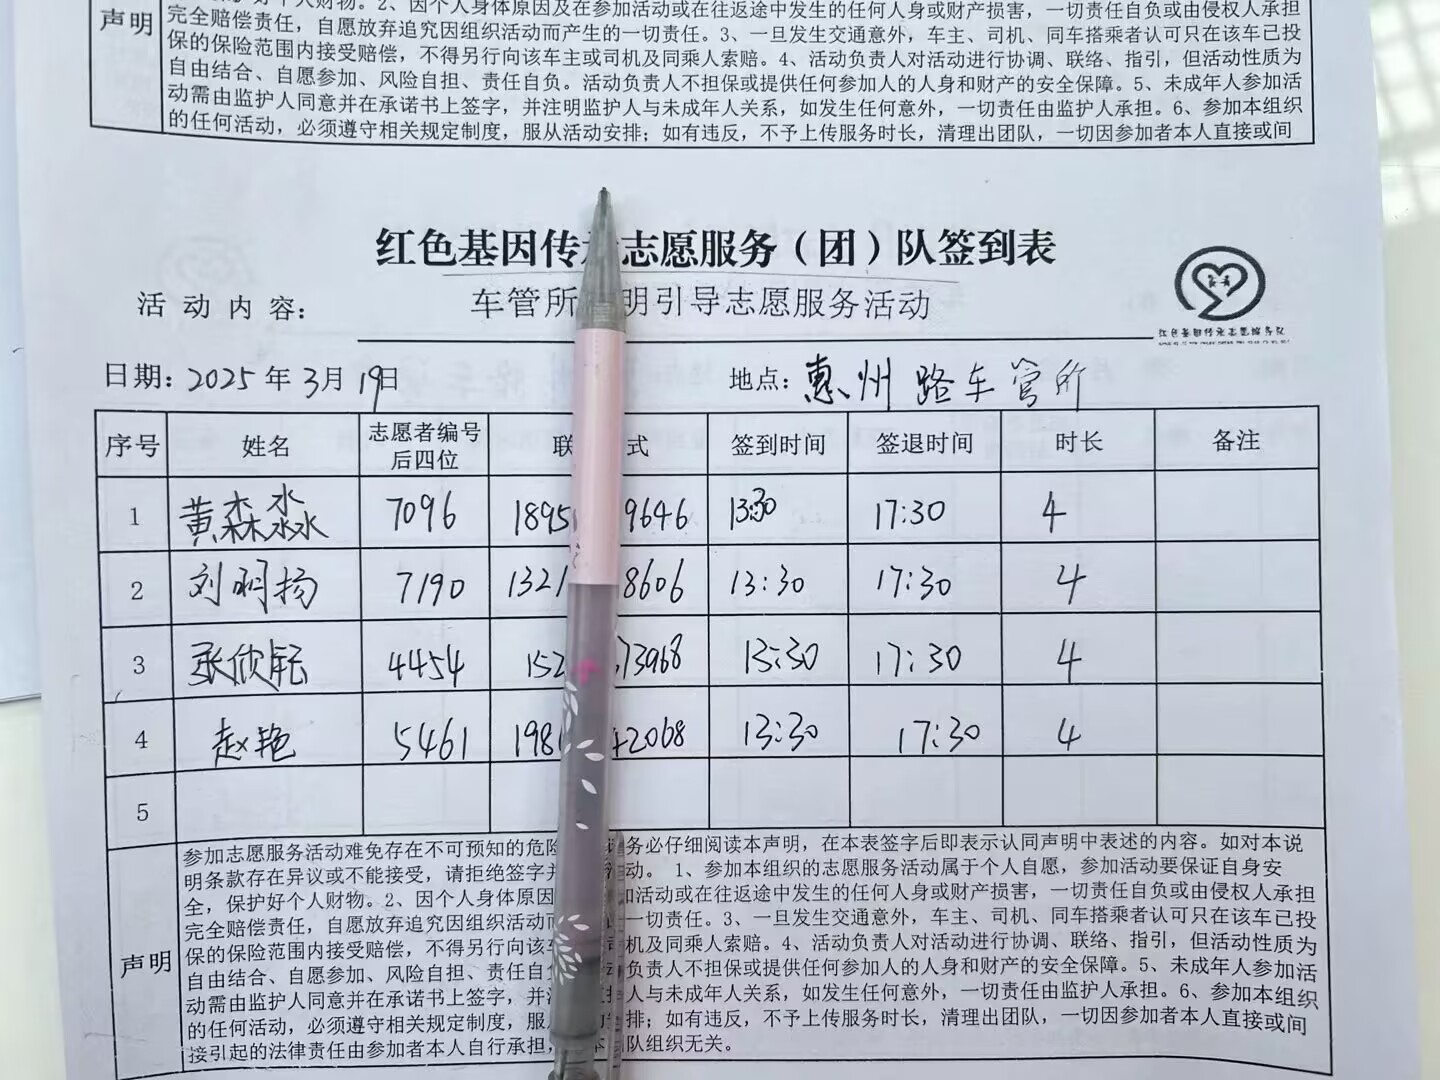 好个人财物。2、因个人身体原因及在参加活动或在往返途中发生的任何人身或财产损害，一切责任自负或由侵权人承担
完全赔偿责任，自愿放弃追究因组织活动而产生的一切责任。3、一旦发生交通意外，车主、司机、同车搭乘者认可只在该车已投
保的保险范围内接受赔偿，不得另行向该车主或司机及同乘人索赔。4、活动负责人对活动进行协调、联络、指引，但活动性质为
声明
自由结合、自愿参加、风险自担、责任自负。活动负责人不担保或提供任何参加人的人身和财产的安全保障。5、未成年人参加活
动需由监护人同意并在承诺书上签字，并注明监护人与未成年人关系，如发生任何意外，一切责任由监护人承担。6、参加本组织
的任何活动，必须遵守相关规定制度，服从活动安排；如有违反，不予上传服务时长，清理出团队，一切因参加者本人直接或间
红色基因传 志愿服务（团）队签到表
活动内容： 车管所 明引导志愿服务活动
红色基因传承志愿服务队
日期：2025年3月19日 地点：惠州路车管所
序号 姓名 志愿者编号后四位 联 式 签到时间 签退时间 时长 备注
1 黄森淼 7096 1895 9646 13:30 17:30 4
2 刘明扬 7190 1321 8606 13:30 17:30 4
3 张欣 4454 152 73968 13:30 17:30 4
4 赵艳 5461 198 42068 13:30 17:30 4
5
声明
参加志愿服务活动难免存在不可预知的危险 务必仔细阅读本声明，在本表签字后即表示认同声明中表述的内容。如对本说
明条款存在异议或不能接受，请拒绝签字并 动。 1、参加本组织的志愿服务活动属于个人自愿，参加活动要保证自身安
全，保护好个人财物。2、因个人身体原因 加活动或在往返途中发生的任何人身或财产损害，一切责任自负或由侵权人承担
完全赔偿责任，自愿放弃追究因组织活动而 一切责任。3、一旦发生交通意外，车主、司机、同车搭乘者认可只在该车已投
保的保险范围内接受赔偿，不得另行向该车 机及同乘人索赔。4、活动负责人对活动进行协调、联络、指引，但活动性质为
自由结合、自愿参加、风险自担、责任自 负责人不担保或提供任何参加人的人身和财产的安全保障。5、未成年人参加活
动需由监护人同意并在承诺书上签字，并 人与未成年人关系，如发生任何意外，一切责任由监护人承担。6、参加本组织
的任何活动，必须遵守相关规定制度，服从 排；如有违反，不予上传服务时长，清理出团队，一切因参加者本人直接或间
接引起的法律责任由参加者本人自行承担， 本 队组织无关。